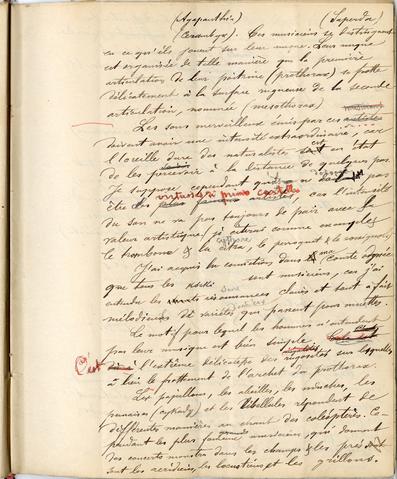 (Agapanthia) (Saperda)
(Cerambyx). Ces musiciens se distinguent
en ce qu'ils jouent sur leur nuque. Leur nuque
est organisée de telle manière que la première
articulation de leur poitrine (prothorax) se frotte
délicatement à la surface rugueuse de la seconde
articulation, nommée (mesothorax)
Les sons merveilleux émis par ces artistes
doivent avoir une intensité extraordinaire, car
l'oreille dure des naturalistes est en état
de les percevoir à la distance de quelques pas.
Je suppose cependant qu'ils ne sont pas
virtuosi di primo cartello
être des plus fameux artistes, car l'intensité
du son ne va pas toujours de pair avec la
valeur artistique; je citerai comme exemples
le trombone & la cithare, le perroquet & le rossignol
J'ai acquis la conviction dans ma
que tous les sont musiciens, car j'ai
entendu les sons clairs et tout à fait
mélodieux de variétés qui passent pour muettes.
Le motif pour lequel les hommes n'entendent
pas leur musique est bien simple.
C'est l'extrême délicatesse des rugosités sur lesquelles
a lieu le frottement de l'archet du prothorax.
Les papillons, les abeilles, les mouches, les
punaises et les libellules répondent de
différentes manières au chant des coléoptères. Ce-
pendant les plus fameux musiciens, qui donnent
des concerts monstres dans les champs & les prés
sont les acridiens, les locustiens et les grillons.